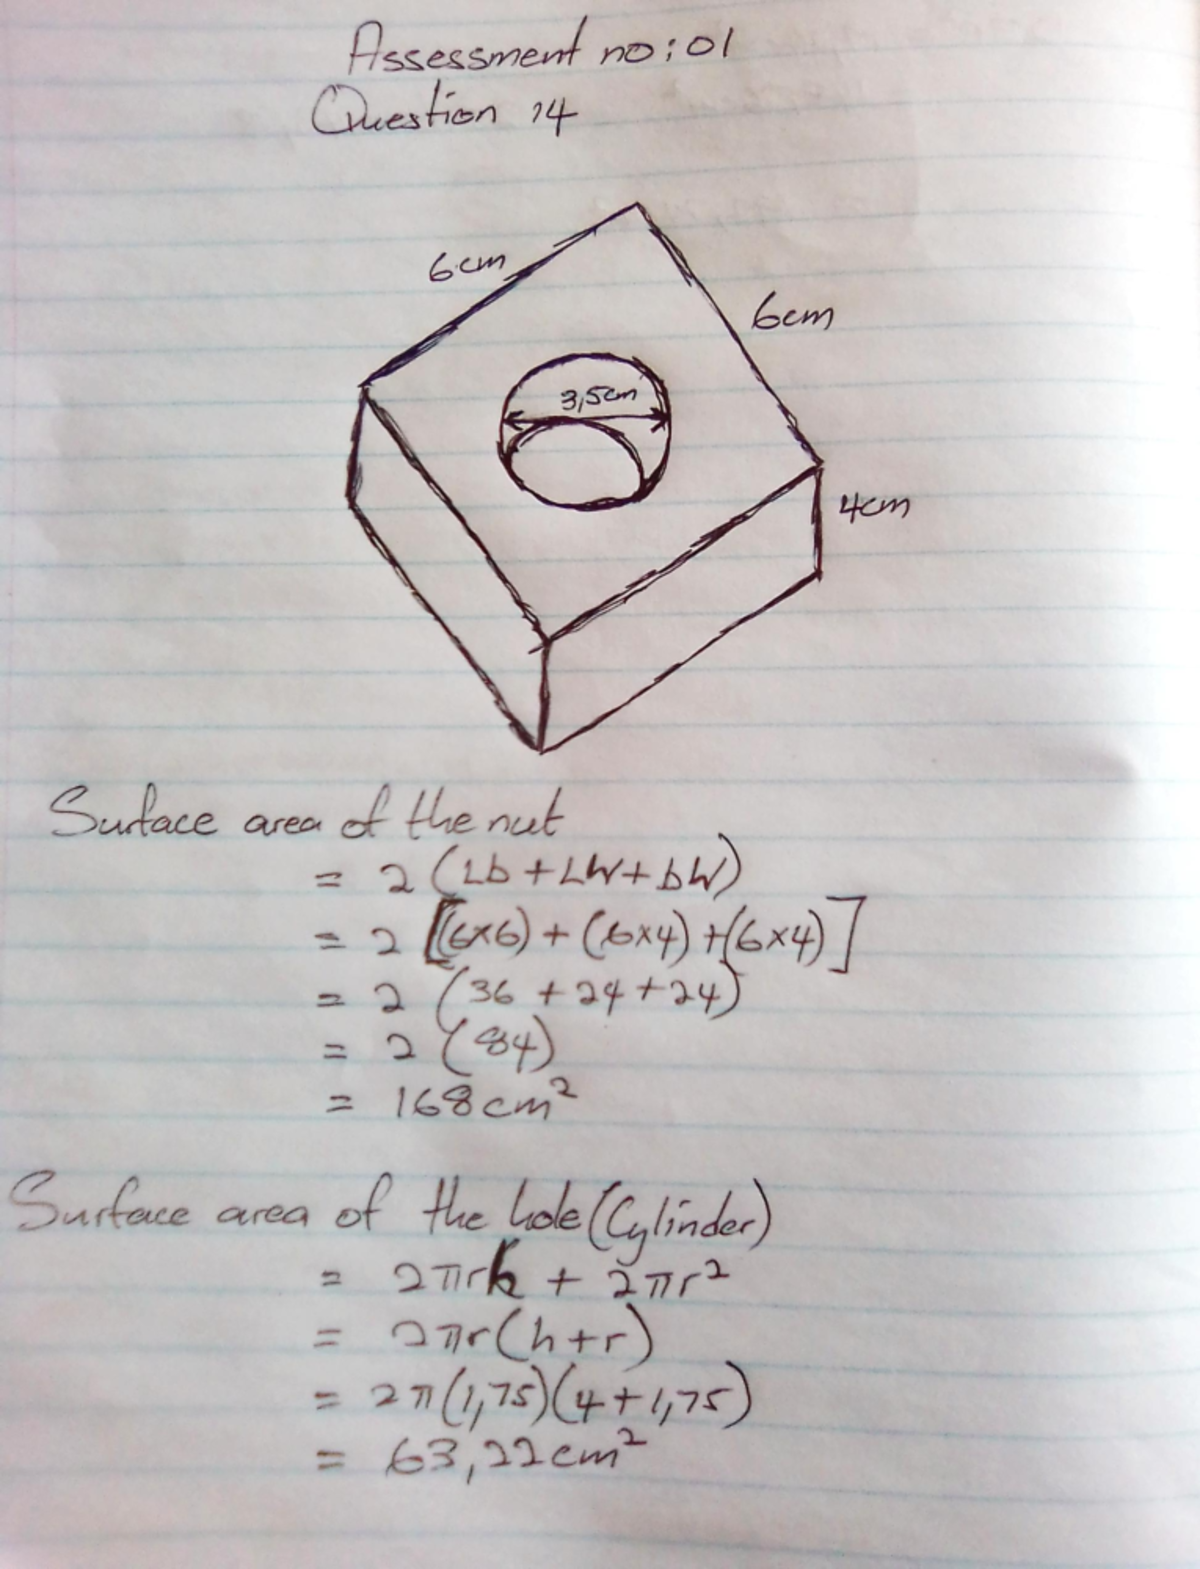 Assessment no: 01
Question 14
6cm
6cm
3,5cm
4cm
Surface area of the nut
= 2 (Lb + LW + bW)
= 2 [(6×6) + (6×4) + (6×4)]
= 2 (36 + 24 + 24)
= 2 (84)
= 168cm²
Surface area of the hole (Cylinder)
= 2πrh + 2πr²
= 2πr(h+r)
= 2π(1,75)(4+1,75)
= 63,22cm²